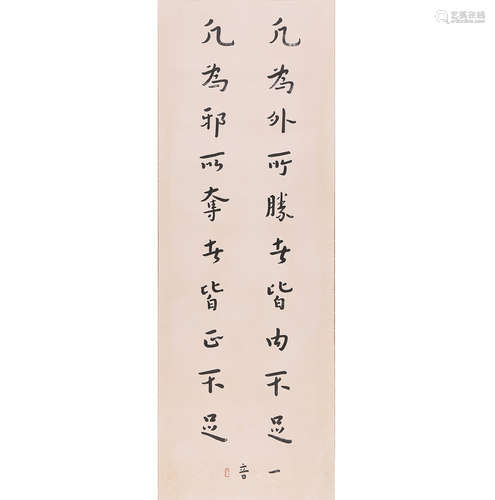 凡為外所勝者皆内不足
凡為邪所奪者皆正不足
一音